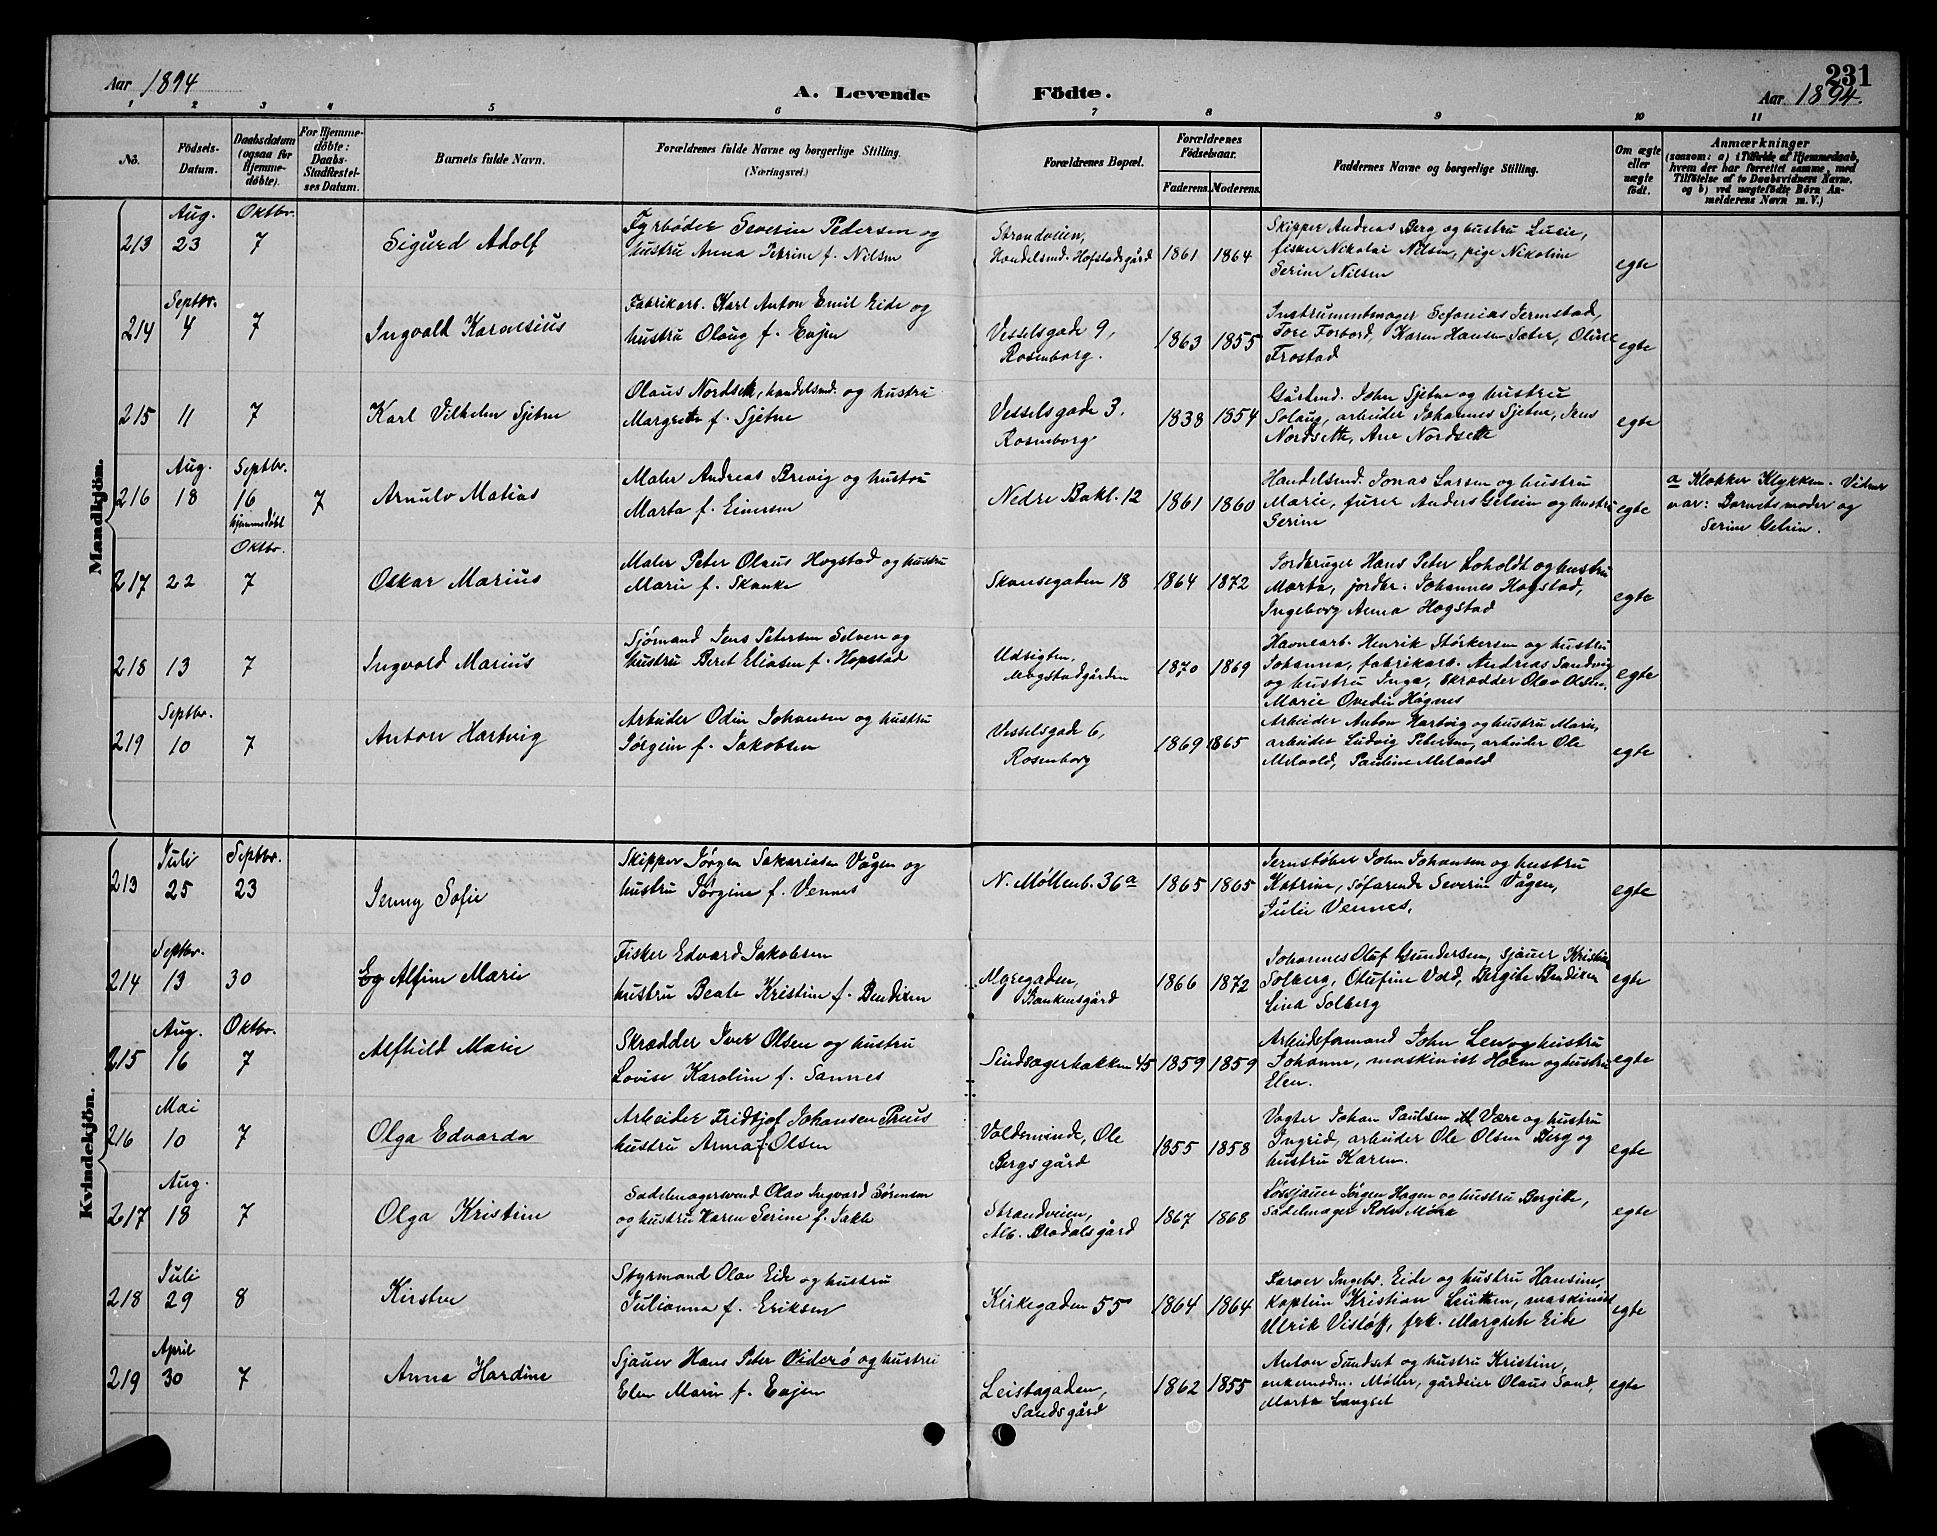 Aar 1894
A. Levende Födte.
231
Aar 1894.
1 2 3 4 5 6 7 8 9 10 11
No.
Födsels-Datum.
Daabsdatum (ogsaa for Hjemmedöbte).
For Hjemmedöbte: Daabs-Stadfæstelses Datum.
Barnets fulde Navn.
Forældrenes fulde Navne og borgerlige Stilling. (Næringsvei.)
Forældrenes Bopæl.
Forældrenes Födselsaar.
Faderens. Moderens.
Faddernes Navne og borgerlige Stilling.
Om ægte eller uægte födt.
Anmærkninger
(saasom: a) i Tilfælde af Hjemmedaab, hvem der har forrettet samme, med Tilföielse af to Daabsvidners Navne, og b) ved uægtefödte Börn Anmelderens Navn m. V.)
Mandkjön.
213
Aug. 23
Oktbr. 7
Sigurd Adolf
Fyrbøder Severin Pedersen og
hustru Anna Petrine f. Nilsen
Strandveien,
Handelsmd. Hofstadsgård
1861 1864
Skipper Andreas Berg og hustru Lusie,
fisker Nikolai Nilsen, pige Nikoline
Serine Nilsen
egte
214
Septbr. 4
7
Ingvald Karnesius
Fabrikarb. Karl Anton Emil Eide og
hustru Olaug f. Evjen
Vesselsgade 9,
Rosenborg.
1863 1855
Instrumentmager Sefanias Jermstad,
Tore Forbord, Karen Hansen Sæter, Oline
Frostad
egte
215
11
7
Karl Vilhelm Sjetne
Olaus Nordseth, handelsmd. og hustru
Margrete f. Sjetne
Vesselsgade 3.
Rosenborg
1838 1854
Gårbmd. John Sjetne og hustru
Solaug, arbeider Johannes Sjetne, Jens
Nordsette, Ane Nordsette
egte
216
Aug. 18
Septbr. 16
hjemmedøbt
7
Arnulv Matias
Maler Andreas Brevig og hustru
Marta f. Einersen
Nedre Bakl. 12
1861 1860
Handelsmd. Jonas Larsen og hustru
Marie, furer Anders Gelein og hustru
Serine
egte
a Klokker Klykken. Vidner
var: Barnets moder og
Serine Gelein.
217
22
Oktbr. 7
Oskar Marius
Maler Peter Olaus Hogstad og hustru
Marie f. Skanke
Skansegaden 18
1864 1872
Jordbruger Hans Peter Loholdt og hustru
Marta, jordbr. Johannes Hogstad,
Ingeborg Anna Hogstad
egte
218
13
7
Ingvald Marius
Sjømand Jens Petersen Selven og
hustru Beret Eliasen f. Hopstad
Udsigten,
Mogstadgården
1870 1869
Havnearb. Henrik Størkersen og hustru
Johanna, fabrikarb. Andreas Sandvig
og hustru Inga, skrædder Olav Olsen
Marie Ovedie Høgnes
egte
219
Septbr. 10
7
Anton Hartvig
Arbeider Odin Johansen og hustru
Jørgine f. Jakobsen
Vesselsgade 6,
Rosenborg
1869 1865
Arbeider Anton Hartvig og hustru Marie,
arbeider Ludvig Petersen, arbeider Ole
Melvold, Pauline Melvold
egte
Kvindekjön.
213
Juli 25
Septbr. 23
Jenny Sofie
Skipper Jørgen Sakariasen Vågen og
hustru Jørgine f. Vennes
N. Møllenb. 36a
1865 1865
Jernstøber John Johansen og hustru
Katrine, søfarende Severin Vågen,
Julie Vennes.
egte
214
Septbr. 13
30
Alfine Marie
Fisker Edvard Jakobsen
hustru Beate Kristine f. Bendixen
Mogegaden,
Bankensgård
1866 1872
Johannes Oluf Gundersen, sjauer Kristian
Solberg, Olufine Vold, Bergite Bendixen
Lina Solberg
egte
215
Aug. 16
Oktbr. 7
Alfhild Marie
Skrædder Iver Olsen og hustru
Lovise Karoline f. Sannes
Sindsagerbakken 45
1859 1859
Arbeidsformand John Leu og hustru
Johanne, maskinist Holm og hustru
Elen.
egte
216
Mai 10
7
Olga Edvarda
Arbeider Fridtjof Johansen Preus
hustru Anna f. Olsen
Voldsminde, Ole
Bergs gård
1855 1858
Vogter Johan Paulsen Være og hustru
Ingrid, arbeider Ole Olsen Berg og
hustru Karen.
egte
217
Aug. 18
7
Olga Kristine
Sadelmagersvend Olav Ingvard Sørensen
og hustru Karen Serine f. Sakle
Strandveien,
Alb. Brodalsgård
1867 1868
Løssjauer Jørgen Hagen og hustru Bergitte,
Sadelmager Rolv Mørk
egte
218
Juli 29
8
Kirsten
Styrmand Olav Eide og hustru
Julianna f. Eriksen
Kirkegaden 55
1864 1864
Farver Ingebr. Eide og hustru Hansine,
kaptein Kristian Leutten, maskinist
Ulrik Visløf, frk. Margrete Eide
egte
219
April 30
7
Anna Hardine
Sjauer Hans Peter Viderø og hustru
Elen Marie f. Evjen
Leistagaden,
Sandsgård
1862 1855
Anton Sundset og hustru Kristine,
enkemadm. Møller, gårdeier Olaus Sand,
Marta Langset
egte